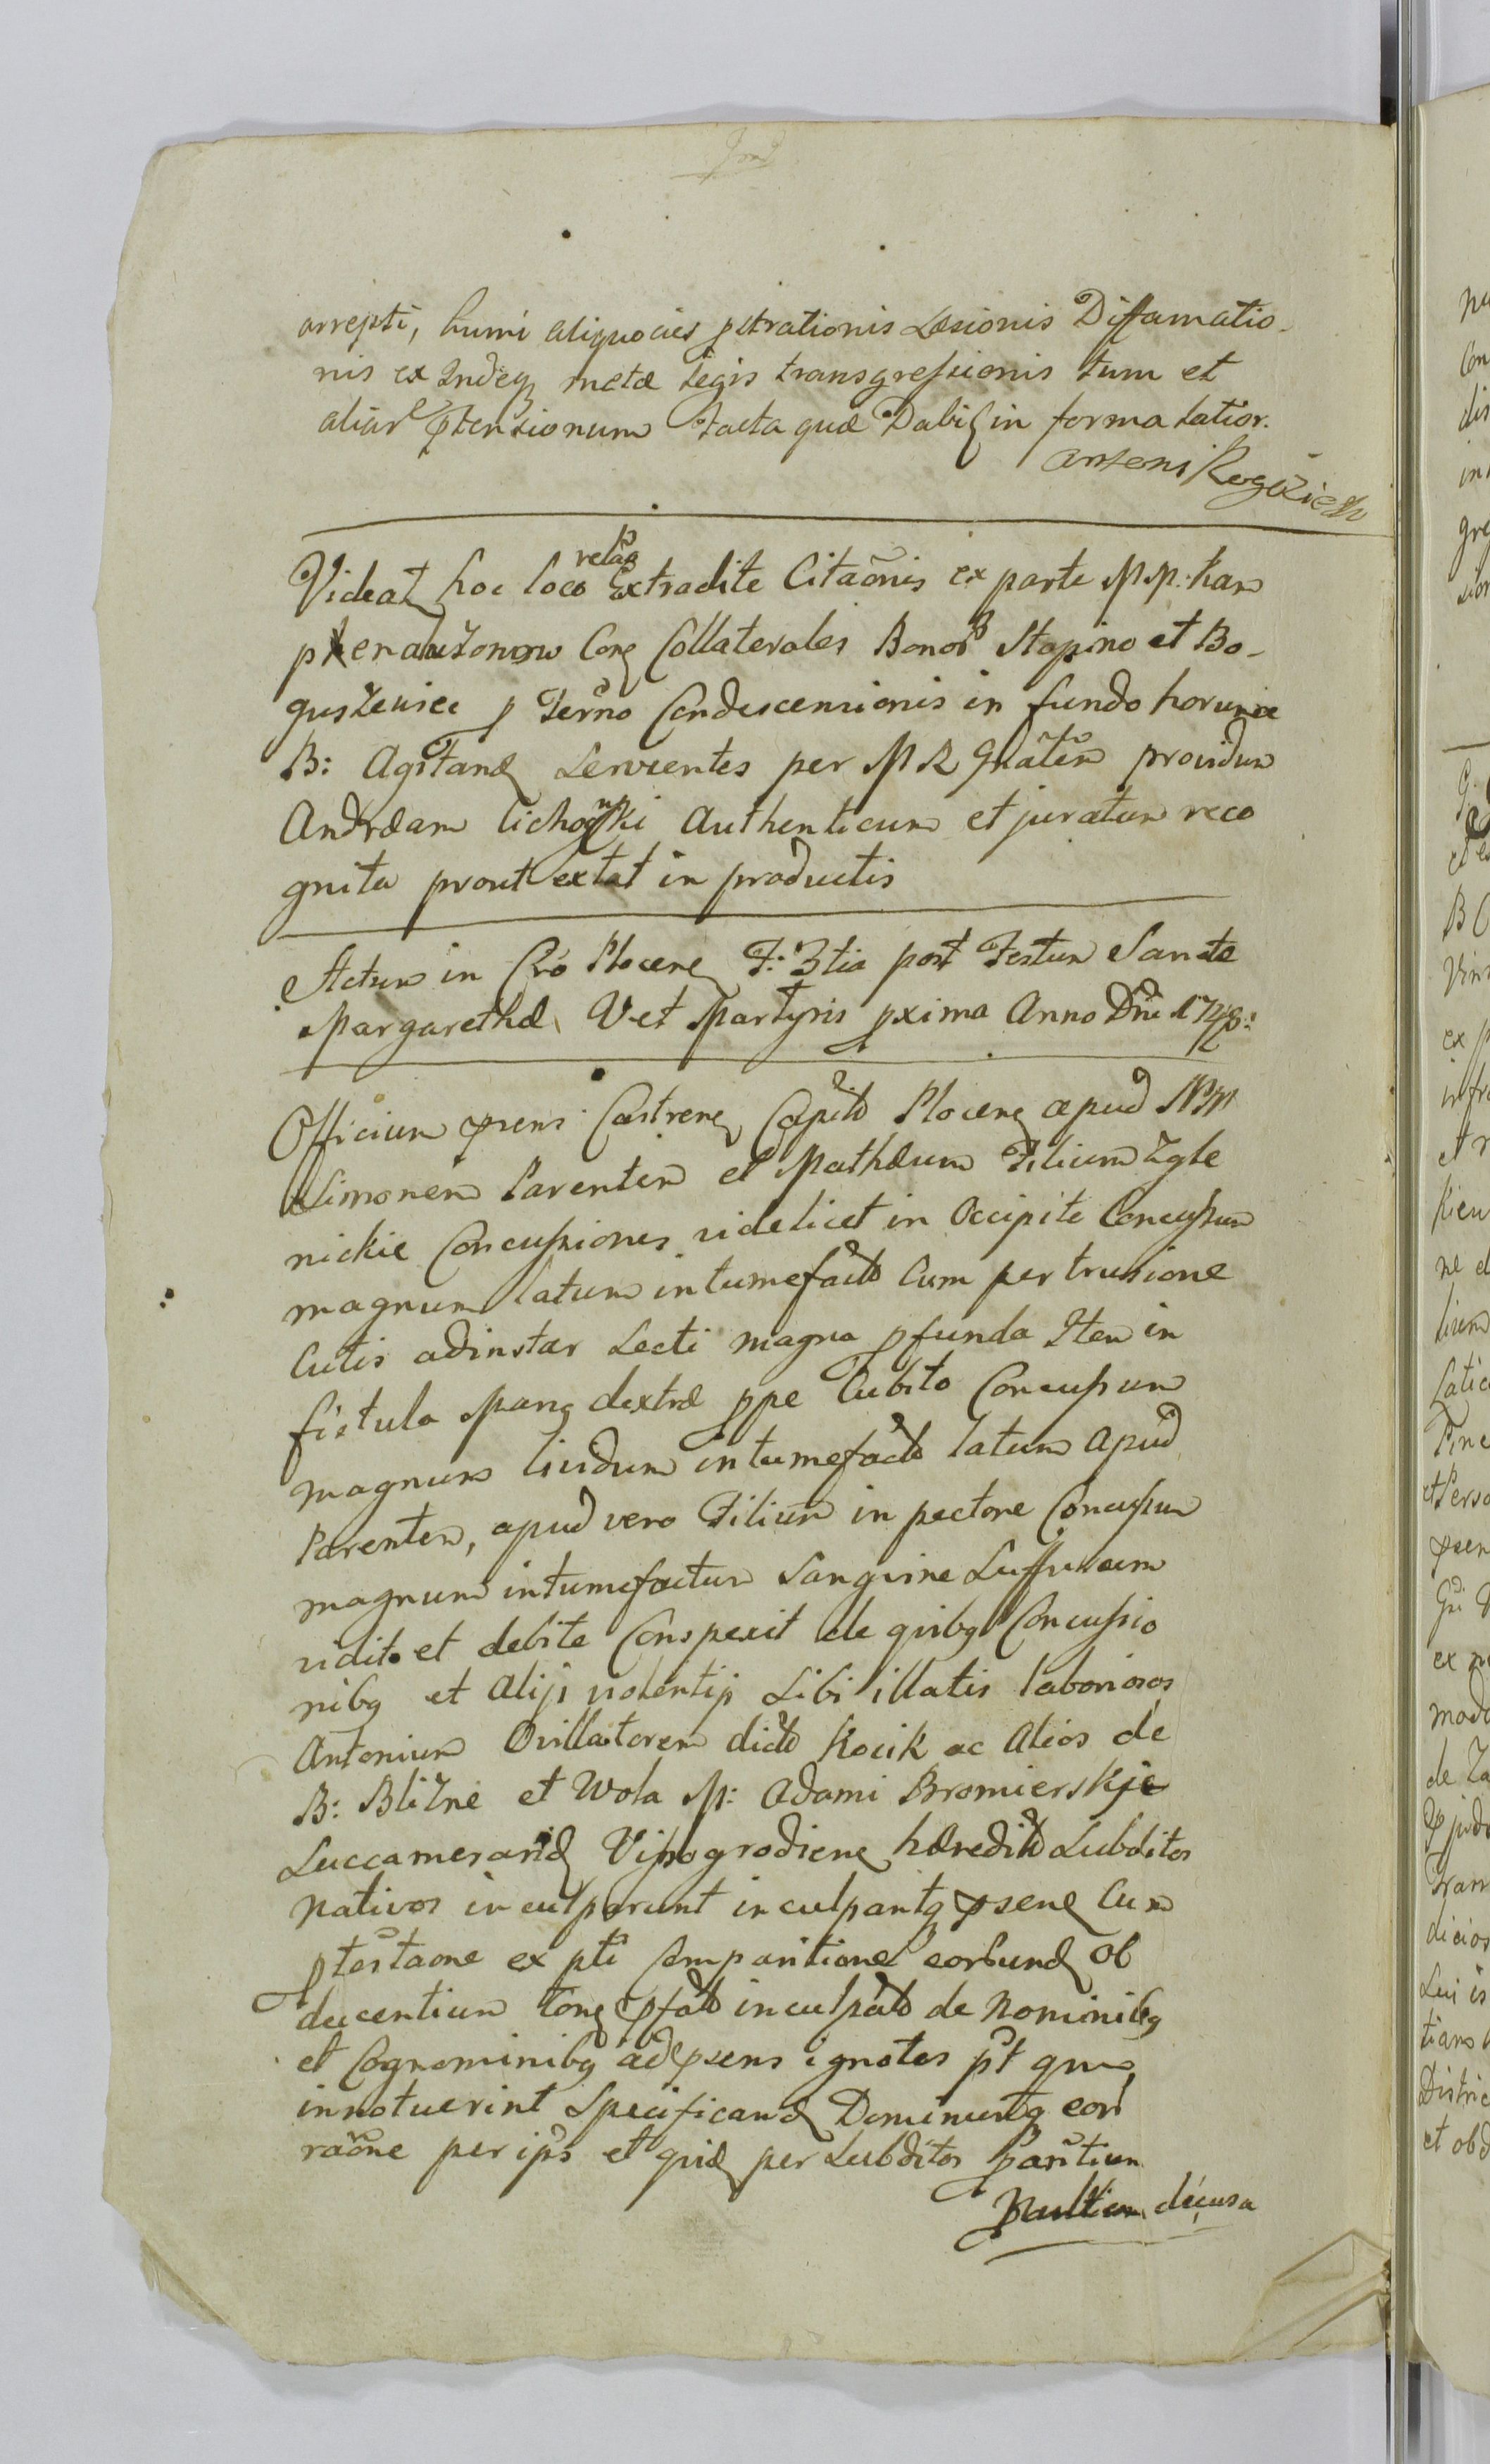 arrepti, humi aliquocies ptrationis Læsionis Diffamatio-
nis ex Indeq metæ legis transgressionis tum et
aliar ptensionum facta quæ Dabit in forma latior.
Antoni
Videat hoc loco relao Extradite Citaõnis ex parte MM.
Conq Collaterales Bonor Stapino et Bo-
guszewice p Termo Condescensionis in fundo horunce
B: Agitand Servientes per M R Gnãlem providum
Andræam Cichoński Authenticum et juratum reco
gnita prout extat in productis
Actum in Cro Plocen F: 3tia post Festum Sanctæ
Margarethæ V et Martyris pxima Anno Dni 1748:
Officium psens Castrens Capitle Plocen apud NM
Simonem Parentem et Mathæum Filium Zgle
nickie Concussiones videlicet in Occipite Concussum
magnum latum intumefact Cum pertrusione
Cutis adinstar Secti magna pfunda Item in
fistula Manq dextræ ppe Cubito Concussum
magnum lividum intumefact latum apud
Parentem, apud vero Filium in pectore Concussum
magnum intumefactum Sanguine Suffusum
vidit et debite Conspexit de quibq Concussio
nibq et alijs violentijs Sibi illatis laboriosos
Antonium Ovillatorem dict Kocik ac alios de
B: Blizne et Wola M: Adami Bromierskje
Succamerarid Vissogrodiens hæredit Subditos
nativos inculparunt inculpantq psenq Cum
ptestaone ex pti Comparitione eorund ob
ducentium Conq pfat inculpat de Nominibq
et Cognominibq ad psens ignotos pt quo
innotuerint Specificand Dominumq eor
raõne per ips et quid per Subditos Paritium
décusa